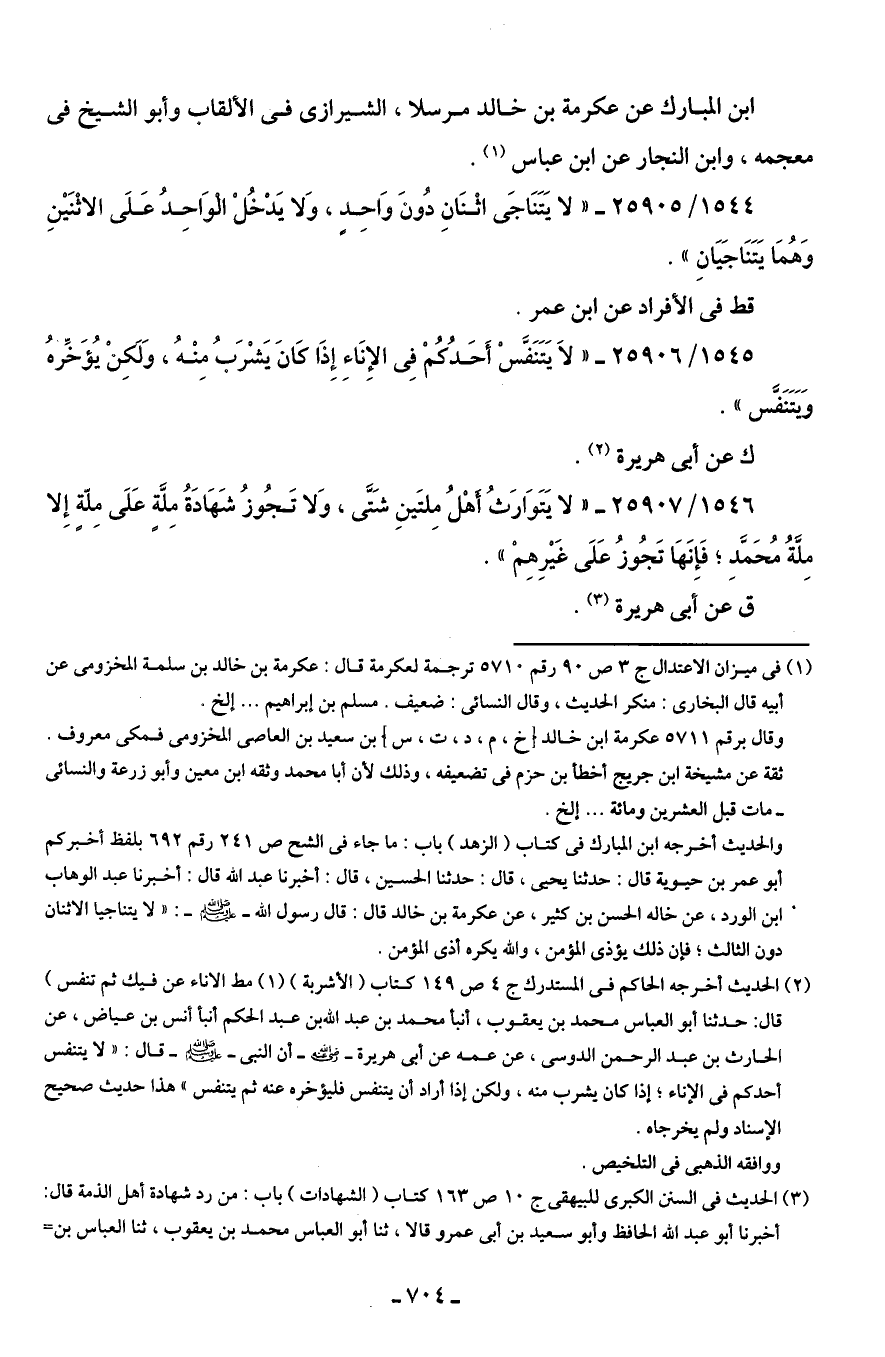 ابن المبارك عن عكرمة بن خالد مرسلا ، الشيرازى فى الألقاب وأبو الشيخ فى
معجمه ، وابن النجار عن ابن عباس (١) .
٢٥٩٠٥/١٥٤٤ ـ « لا يَتَنَاجَى اثْنَانِ دُونَ وَاحِدٍ ، وَلا يَدْخُلْ الْوَاحِدُ عَلَى الاثْنَيْنِ
وَهُمَا يَتَنَاجَيَانِ » .
قط فى الأفراد عن ابن عمر .
٢٥٩٠٦/١٥٤٥ ـ « لاَ يَتَنَفَّسْ أَحَدُكُمْ فِى الإِنَاءِ إِذَا كَانَ يَشْرَبُ مِنْهُ ، وَلَكِنْ يُؤَخِّرهُ
وَيَتَنَفَّس » .
ك عن أبى هريرة (٢) .
٢٥٩٠٧/١٥٤٦ ـ « لا يَتَوَارَثُ أَهْلُ مِلتَينِ شَتَّى ، وَلا تَجُوزُ شَهَادَةُ مِلَّةٍ عَلَى مِلّةٍ إِلا
مِلَّةُ مُحَمَّدٍ ؛ فَإِنَهَا تَجُوزُ عَلَى غَيْرِهِمْ » .
ق عن أبى هريرة (٣) .
(١) فى ميزان الاعتدال ج ٣ ص ٩٠ رقم ٥٧١٠ ترجمة لعكرمة قال : عكرمة بن خالد بن سلمة المخزومى عن
أبيه قال البخارى : منكر الحديث ، وقال النسائى : ضعيف . مسلم بن إبراهيم ... إلخ .
وقال برقم ٥٧١١ عكرمة ابن خالد {خ ، م ، د ، ت ، س } بن سعيد بن العاصى المخزومى فمكى معروف .
ثقة عن مشيخة ابن جريج أخطأ بن حزم فى تضعيفه ، وذلك لأن أبا محمد وثقه ابن معين وأبو زرعة والنسائى
ـ مات قبل العشرين ومائة ... إلخ .
والحديث أخرجه ابن المبارك فى كتاب ( الزهد ) باب : ما جاء فى الشح ص ٢٤١ رقم ٦٩٢ بلفظ أخبركم
أبو عمر بن حيوية قال : حدثنا يحيى ، قال : حدثنا الحسين ، قال : أخبرنا عبد الله قال : أخبرنا عبد الوهاب
ابن الورد ، عن خاله الحسن بن كثير ، عن عكرمة بن خالد قال : قال رسول الله ـ ﷺ ـ : « لا يتناجيا الاثنان
دون الثالث ؛ فإن ذلك يؤذى المؤمن ، والله يكره أذى المؤمن .
(٢) الحديث أخرجه الحاكم فى المستدرك ج ٤ ص ١٤٩ كتاب ( الأشربة ) (١) مط الاناء عن فيك ثم تنفس )
قال: حدثنا أبو العباس محمد بن يعقوب ، أنبأ محمد بن عبد اللهبن عبد الحكم أنبأ أنس بن عياض ، عن
الحارث بن عبد الرحمن الدوسى ، عن عمه عن أبى هريرة ـ رضي الله عنه ـ أن النبى ـ ﷺ ـ قال : « لا يتنفس
أحدكم فى الإناء ؛ إذا كان يشرب منه ، ولكن إذا أراد أن يتنفس فليؤخره عنه ثم يتنفس » هذا حديث صحيح
الإسناد ولم يخرجاه .
ووافقه الذهبى فى التلخيص .
(٣) الحديث فى السنن الكبرى للبيهقى ج ١٠ ص ١٦٣ كتاب ( الشهادات ) باب : من رد شهادة أهل الذمة قال:
أخبرنا أبو عبد الله الحافظ وأبو سعيد بن أبى عمرو قالا ، ثنا أبو العباس محمد بن يعقوب ، ثنا العباس بن=
ـ ٧٠٤ ـ